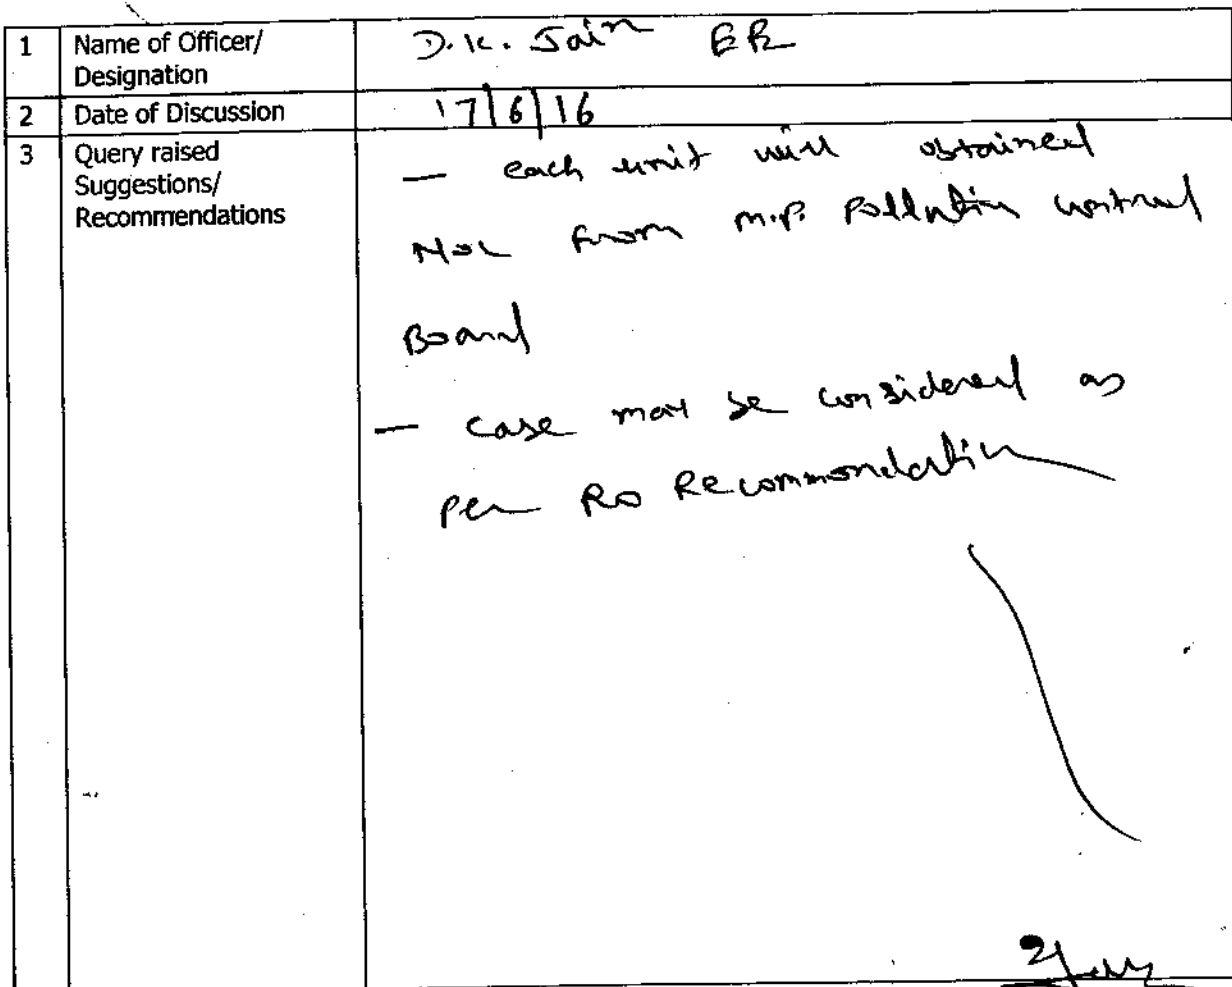 1 Name of Officer/ Designation D.K. Jain EE
2 Date of Discussion 17/6/16
3 Query raised Suggestions/ Recommendations
— each unit will obtained
NOC from M.P. Pollution control
Board
— case may be considered as
per RO Recommondation